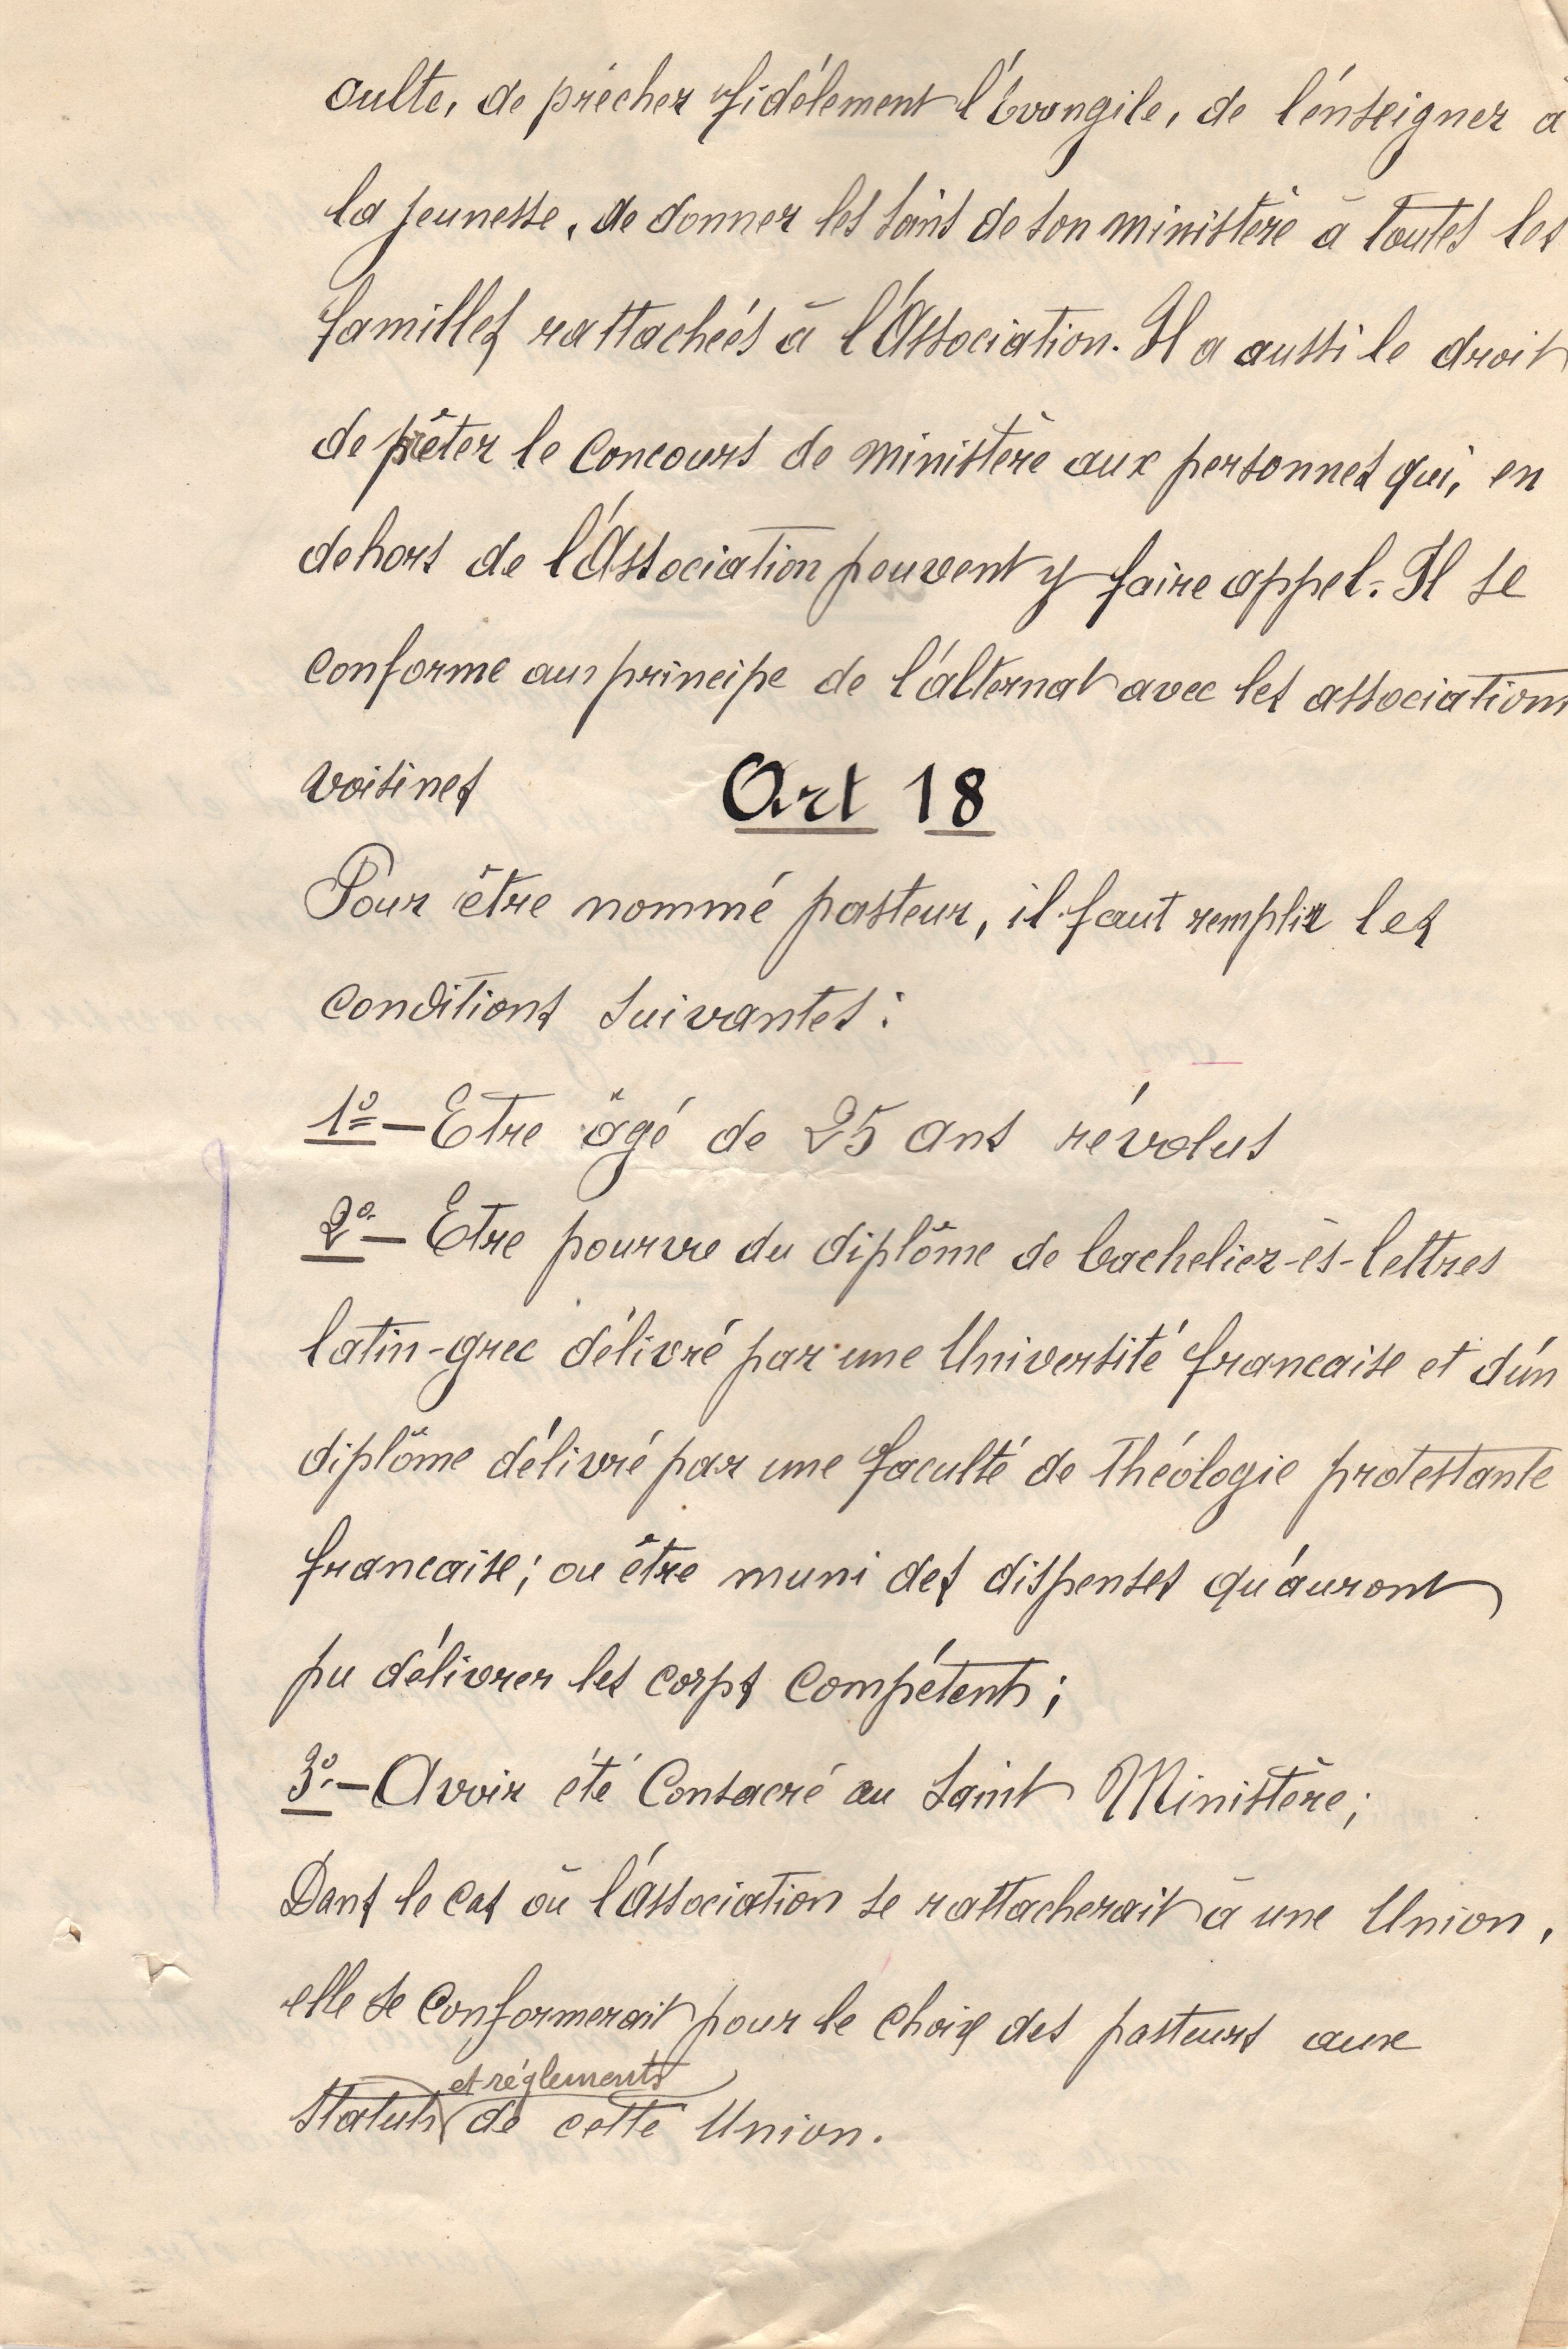 culte, de prêcher fidèlement l'Evangile, de l'enseigner à
la jeunesse, de donner les soins de son ministère à toutes les
familles rattachées à l'Association. Il a aussi le droit
de prêter le concours de ministère aux personnes qui, en
dehors de l'Association peuvent y faire appel. Il se
conforme au principe de l'alternat avec les associations
voisines
Art 18
Pour être nommé pasteur, il faut remplir les
conditions suivantes:
1º - Etre âgé de 25 ans révolus
2º - Etre pourvu du diplôme de bachelier-ès-lettres
latin-grec délivré par une Université francaise et d'un
diplôme délivré par une faculté de Théologie protestante
francaise; ou être muni des dispenses qu'auront
pu délivrer les corps compétents;
3º - Avoir été Consacré au Saint Ministère;
Dans le cas où l'association se rattacherait à une Union,
elle se conformerait pour le choix des pasteurs aux
et règlements
Statuts de cette Union.